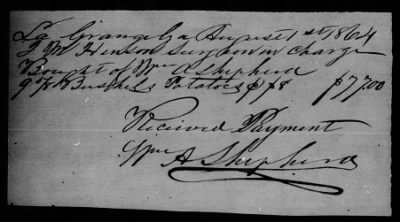 La Grange Ga August 1st 1864
Surgeon in Charge
Bought of Wm A Shepherd
Bushels Potatoes $8 $77.00
Received Payment
Wm A Shepherd